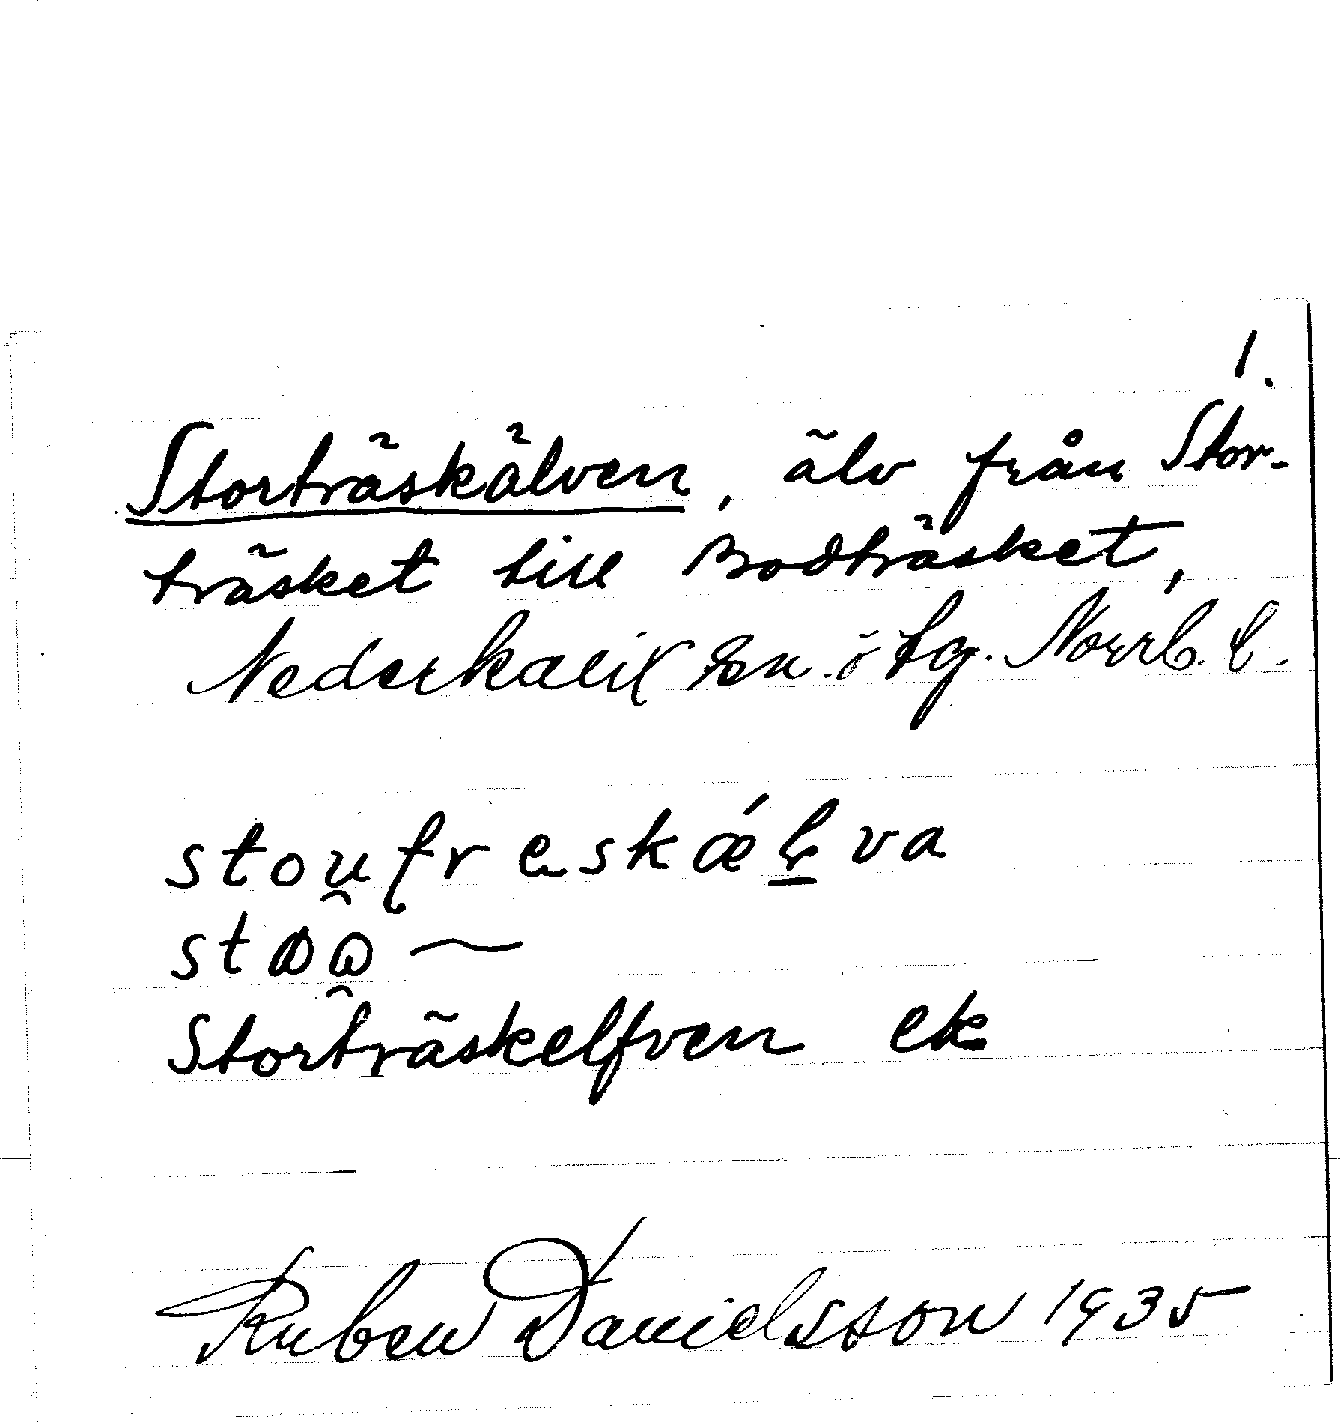 1.
Storträskälven, älv från Stor-
träsket till Bodträsket,
Nederkalix sn. ö tg. Norrb. l.
stou̯treskǽlva
st
Storträskelfven ek
Ruben Danielsson 1935